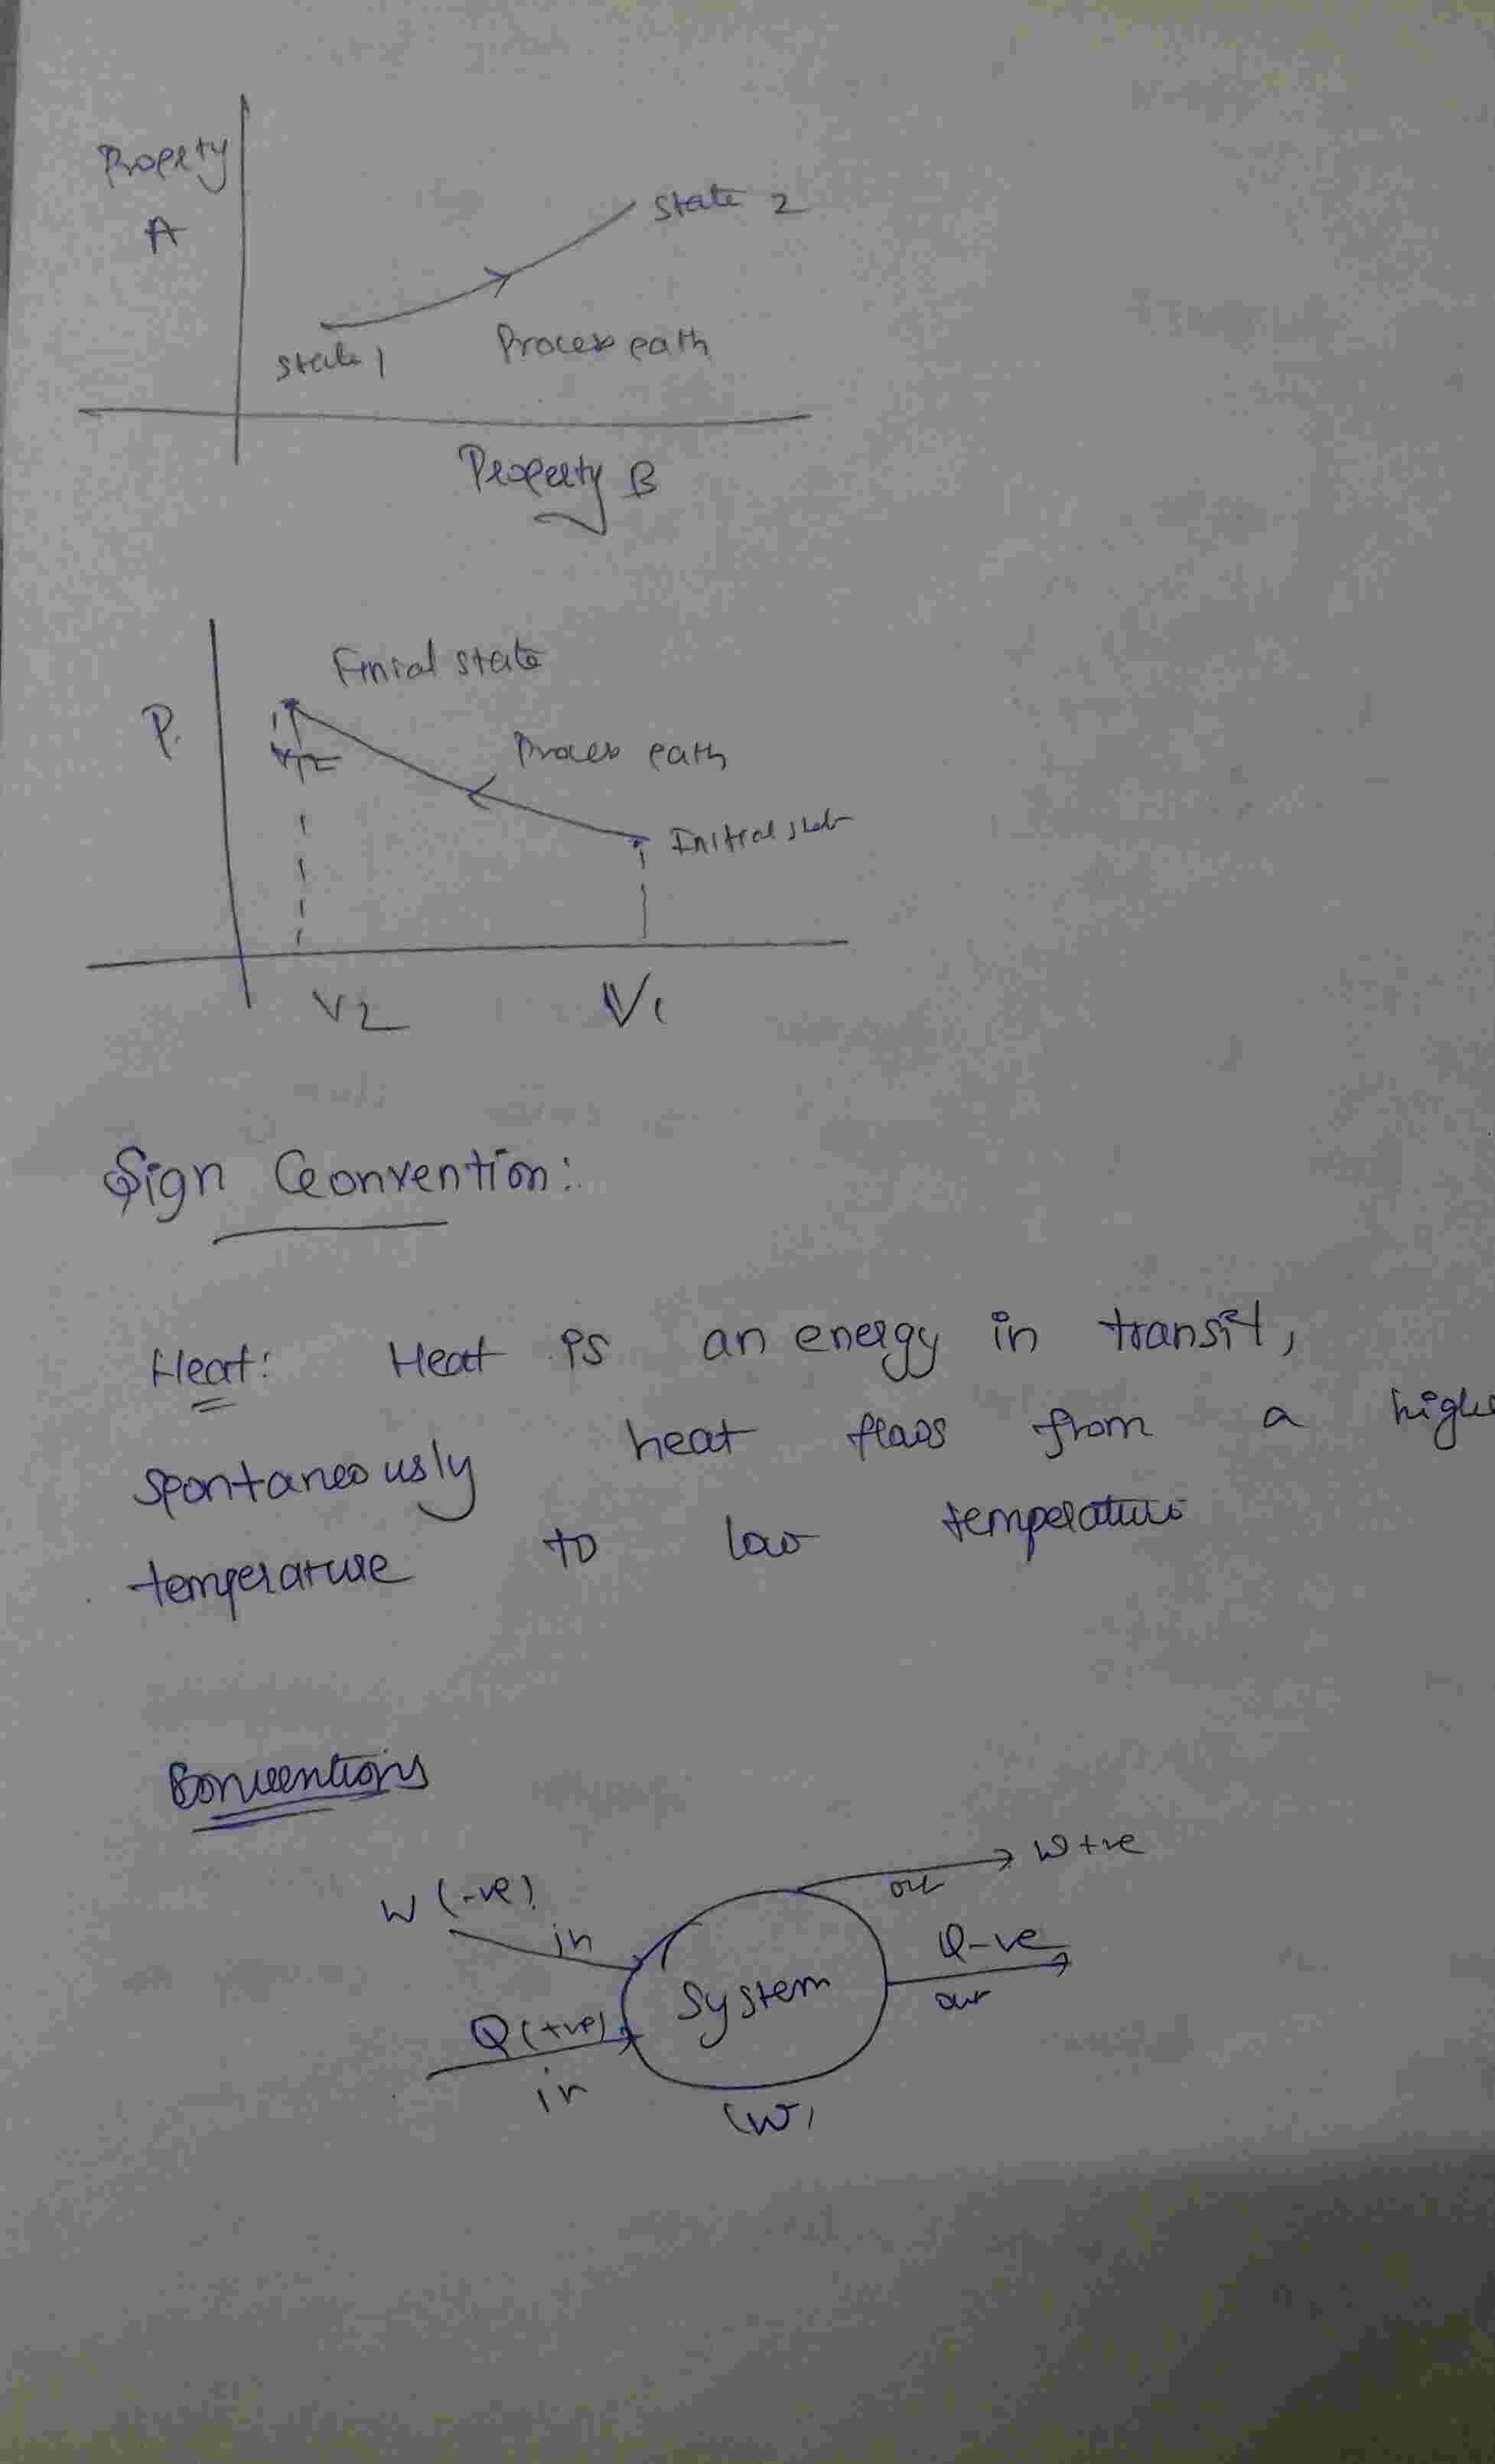 Property
A
State 2
State 1
Process path
Property B
Finial state
P.
Process path
Initial state
V2
V1
Sign Convention:
Heat: Heat is an energy in transit,
spontaneously heat flows from a highe
temperature to low temperature
Conventions
W +ve
out
W (-ve)
in
Q-ve
out
System
Q (+ve)
in
(W)